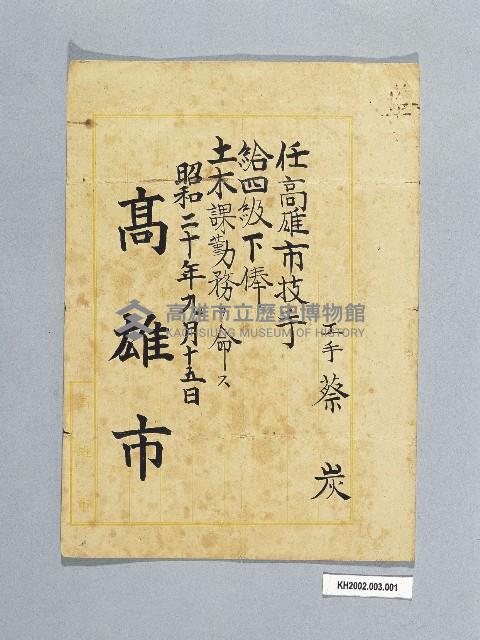 工手 蔡炭
任高雄市技手
給四級下俸
土木課勤務ヲ命ス
昭和二十年九月十五日
高雄市
高雄市立歷史博物館
KAOHSIUNG MUSEUM OF HISTORY
KH2002.003.001